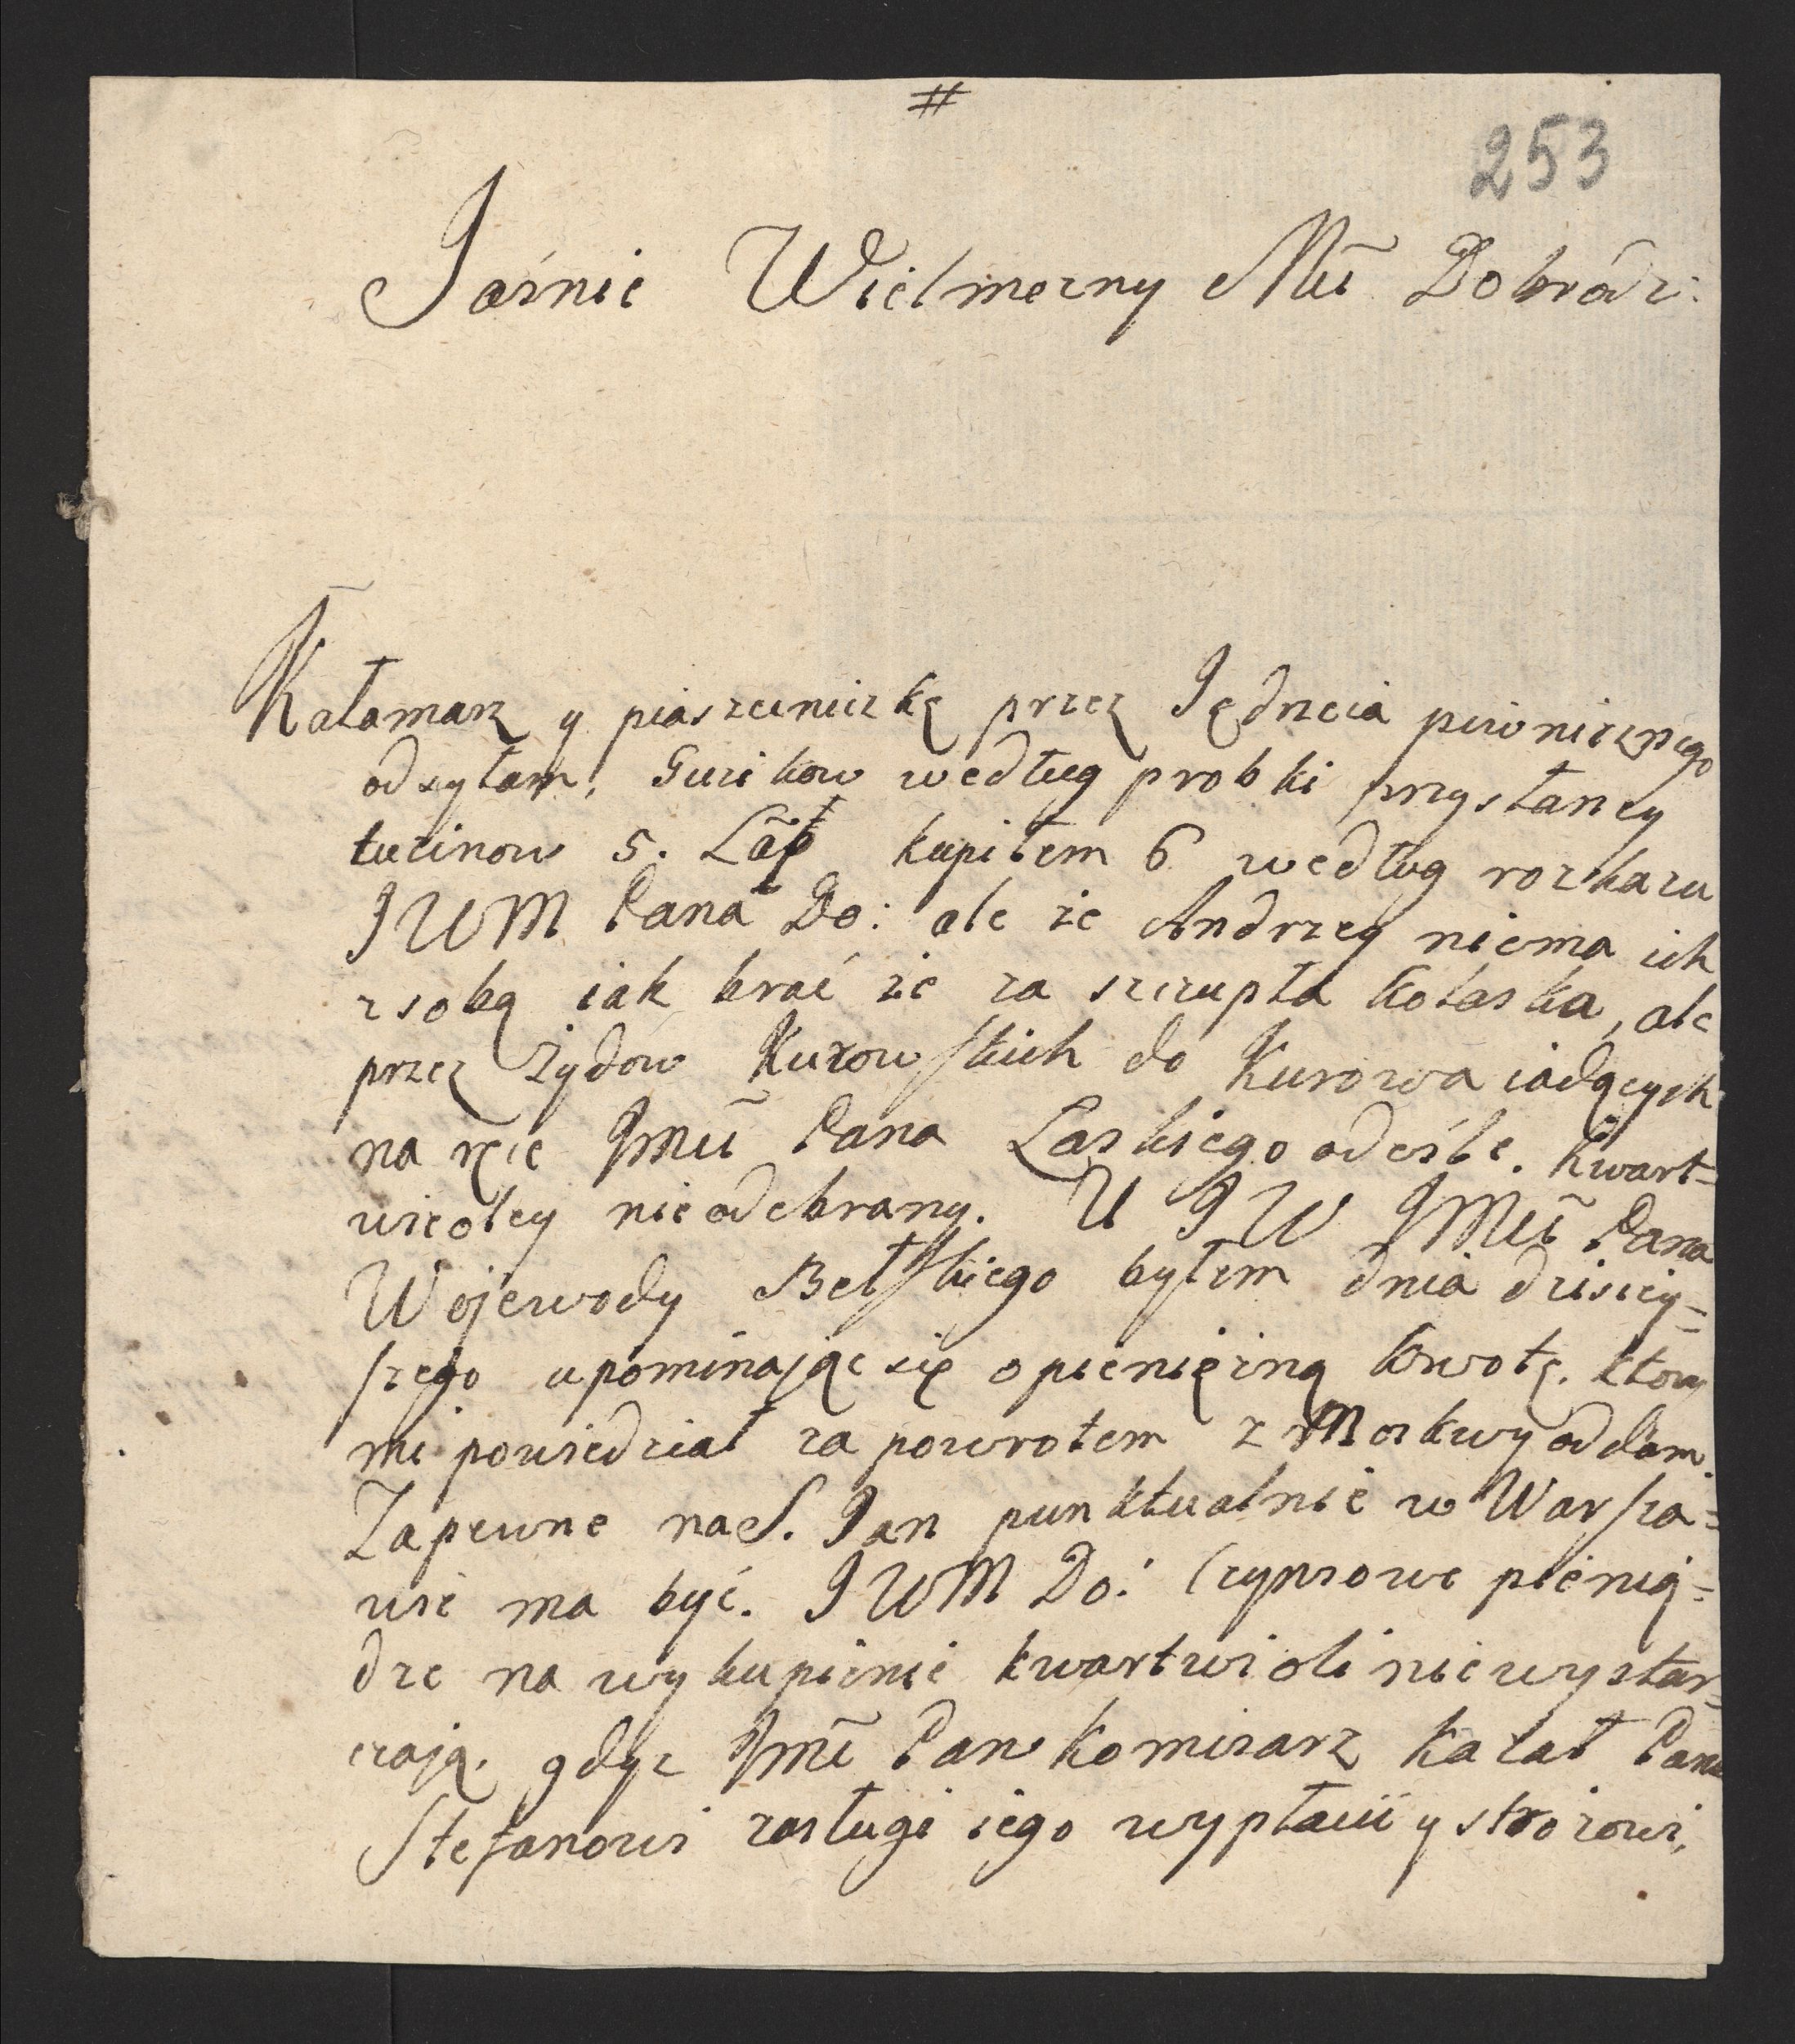 #
253
Jaśnie Wielmozny Mci Dobrodz:
Kałamarz y piaseczniczkę przez Jędrzeia piwnicznego
odsyłam, Guzikow według probki przysłaney
tucinow 5. kupiłem 6 według rozkazu
JWM Pana Do: ale ze Andrzey niema ich
zsobą iak brać że za szczupła kolaska, ale
przez Zydow Kurowskich do Kurowa iadących
na ręce Jmci Pana Laskiego odeśle. Kwart=
wioley nieodebrany. U JW JMci Pana
Wojewody Bełskiego byłem dnia dzisiey=
szego upominając się opienięzną kwotę. ktory
mi powiedział za powrotem z Moskwy oddam.
Zapewne na S. Jan punktualnie w Warsza=
wie ma być. JWM Do: Czynszowe pienią=
dze na wykupienie kwartwioli niewystar=
czają. gdyz Jmci Pan Komisarz kazał Panu
Stefanowi zasługi iego wypłacic y strożowi,